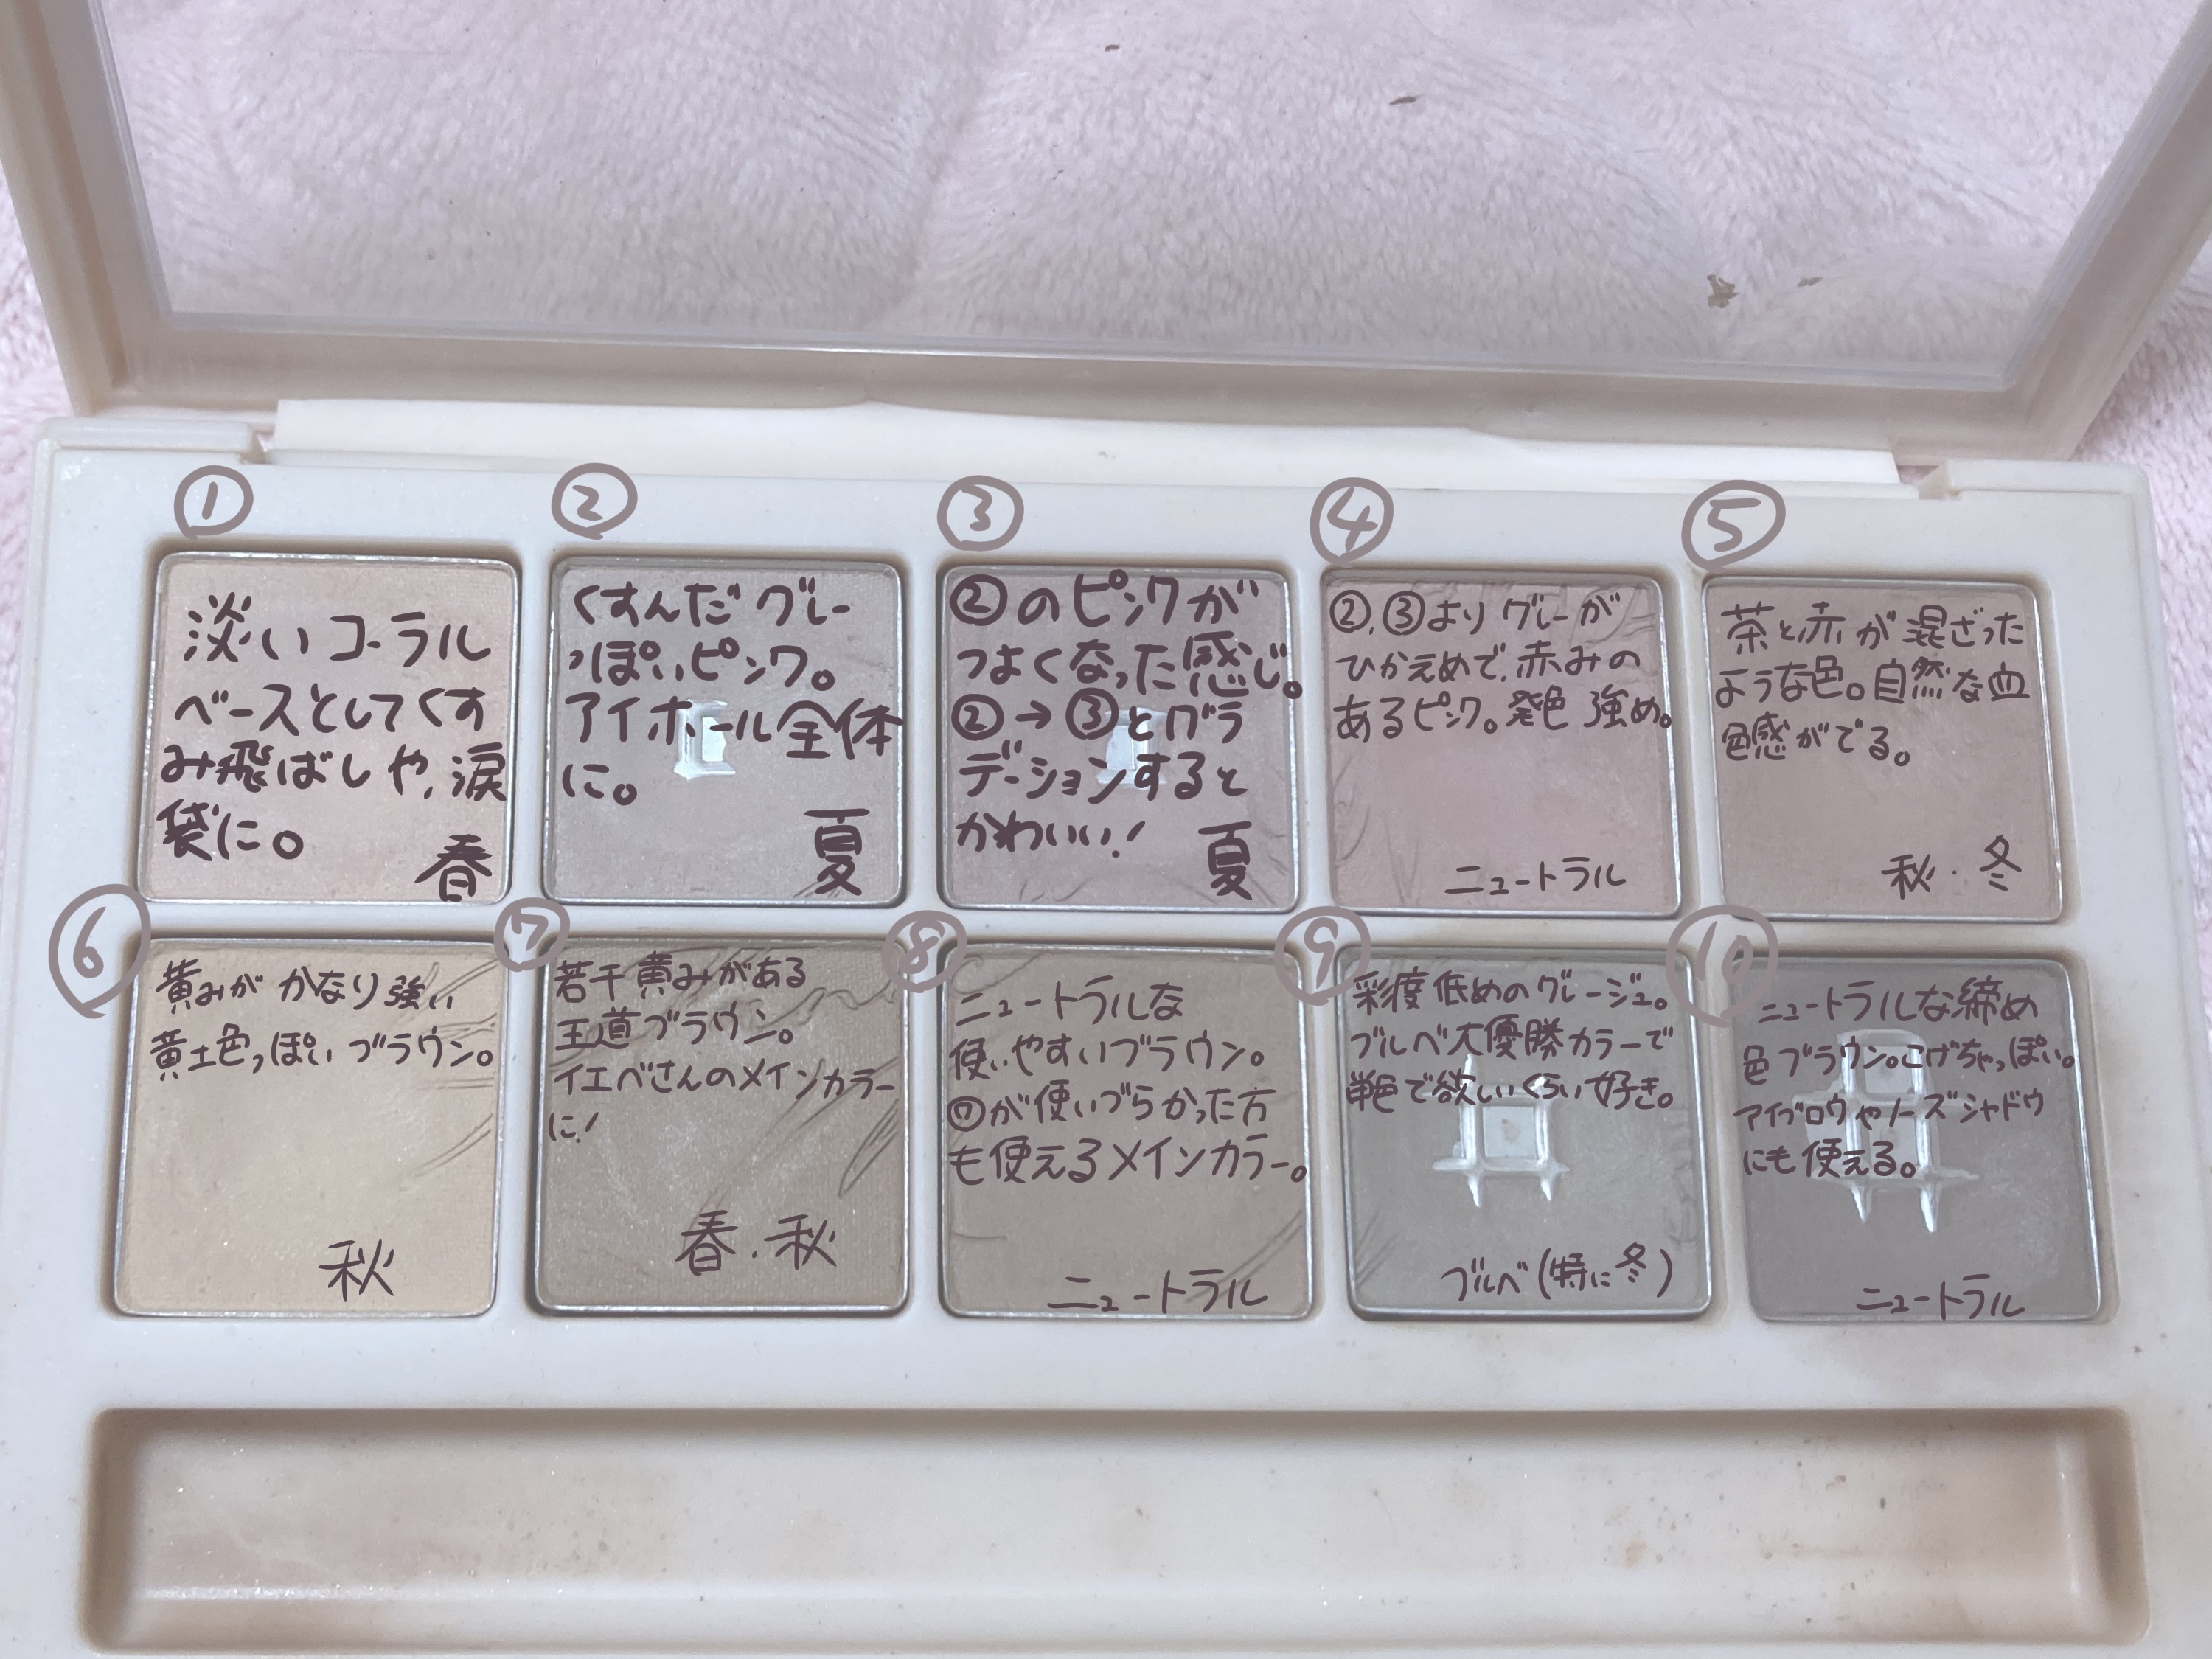 ①
淡いコーラル
ベースとしてくす
み飛ばしや、涙
袋に。
春
②
くすんだグレー
っぽいピンク。
アイホール全体
に。
夏
③
②のピンクが
つよくなった感じ。
②→③とグラ
デーションすると
かわいい！
夏
④
②,③よりグレーが
ひかえめで、赤みの
あるピンク。発色強め。
ニュートラル
⑤
茶と赤が混ざった
ような色。自然な血
色感がでる。
秋・冬
⑥
黄みがかなり強い
黄土色っぽいブラウン。
秋
⑦
若干黄みがある
王道ブラウン。
イエベさんのメインカラー
に！
春・秋
⑧
ニュートラルな
使いやすいブラウン。
⑦が使いづらかった方
も使えるメインカラー。
ニュートラル
⑨
彩度低めのグレージュ。
ブルベ大優勝カラーで
単色で欲しいくらい好き。
ブルベ(特に冬)
⑩
ニュートラルな締め
色ブラウン。こげちゃっぽい。
アイブロウやノーズシャドウ
にも使える。
ニュートラル